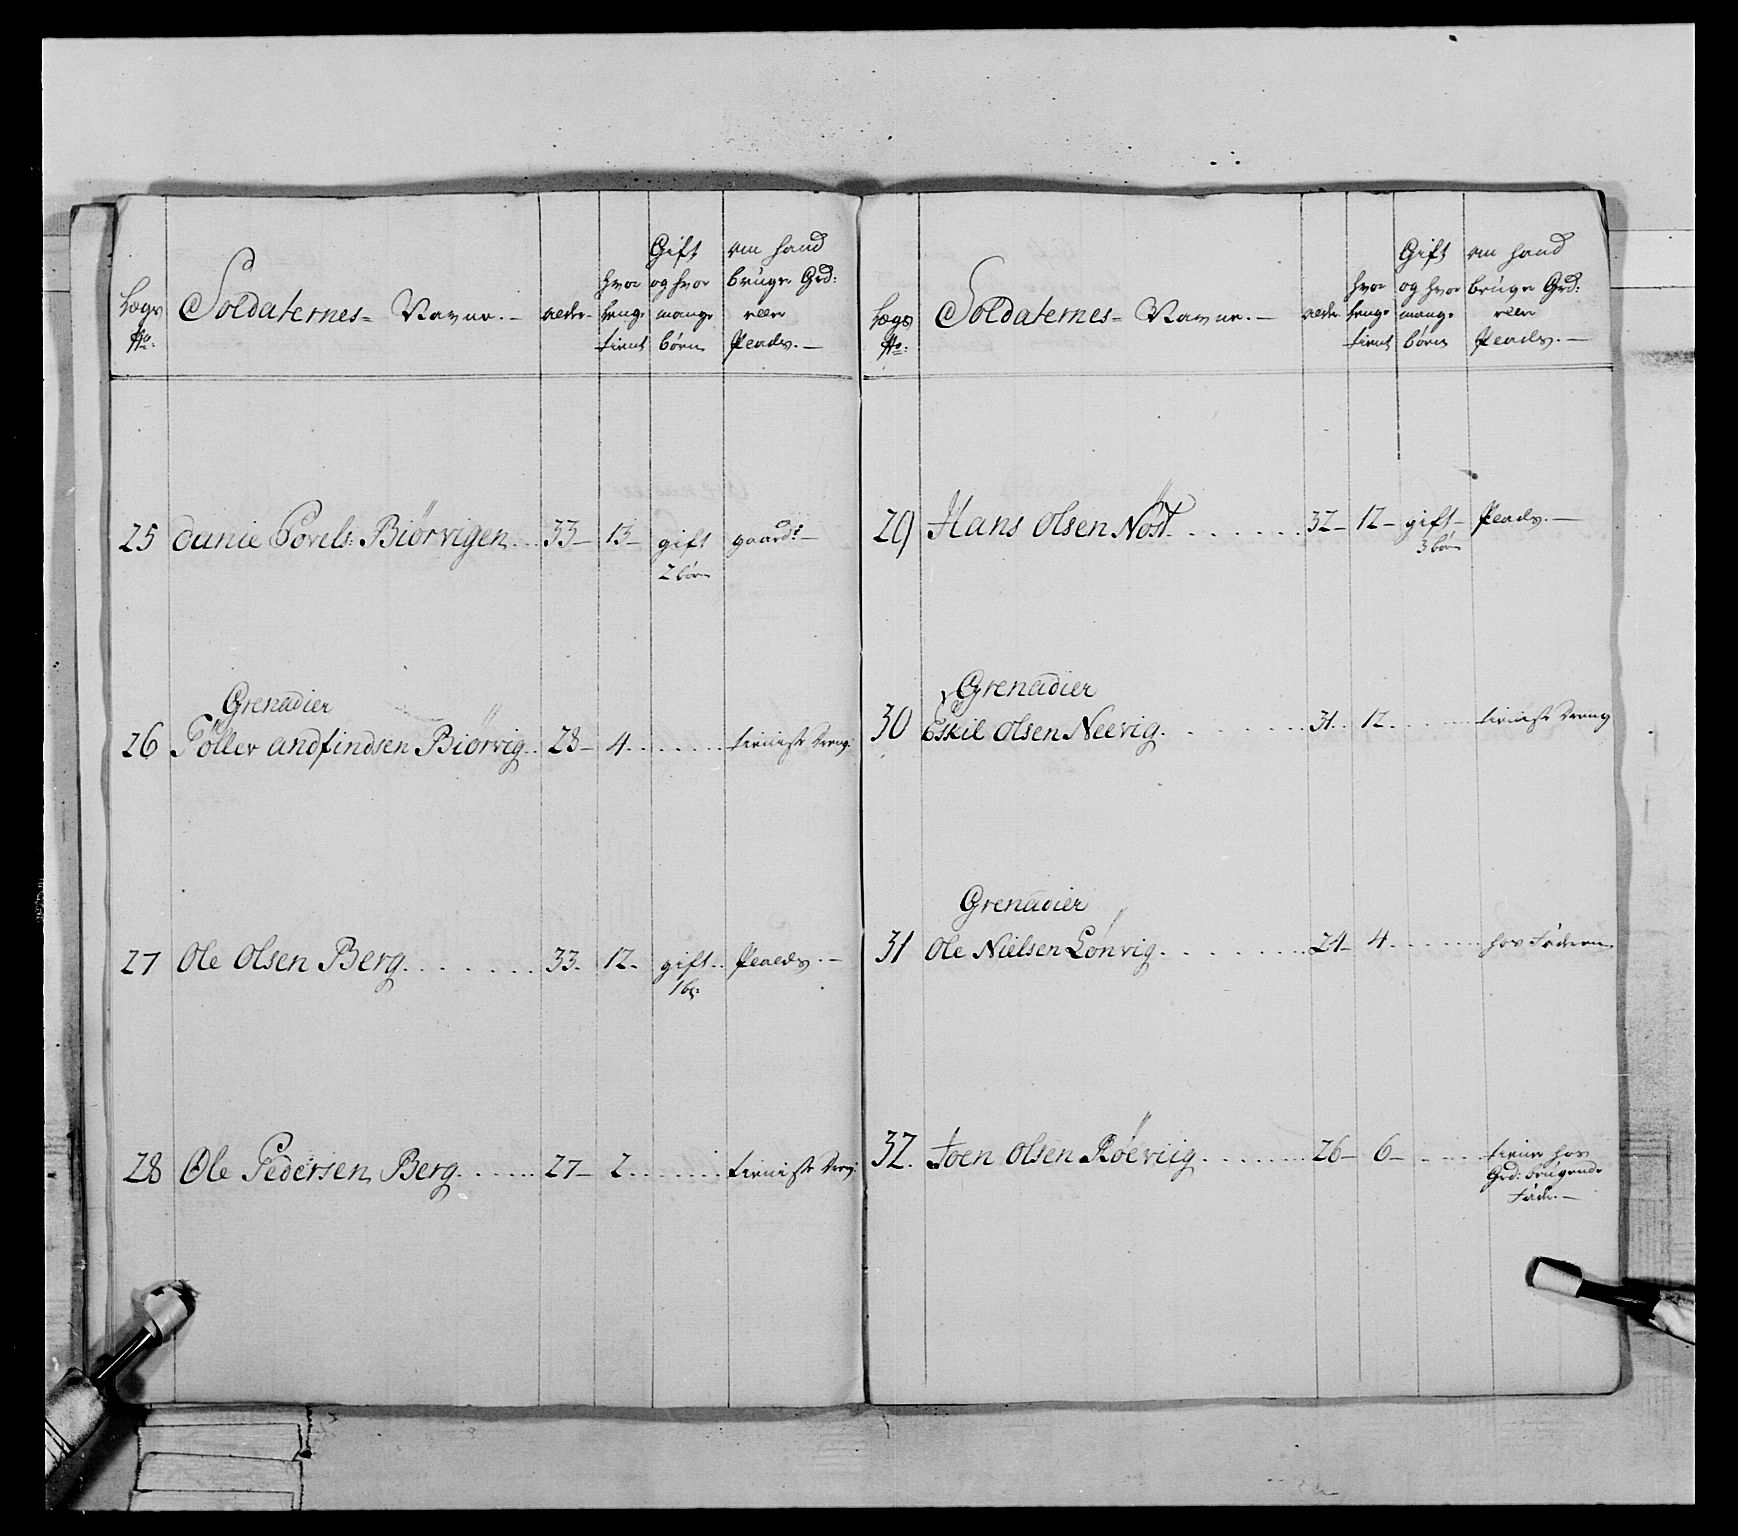 Lægs No: Soldaternes = Navne. — alder hvor længe tient Gift og hvor mange børn om hand bruger Grd: eller Plads. —
25 Danie Povels: Biørvigen... 33 — 13 — gift gaard: —
2 børn
Grenadier
26 Tøller andfindsen Biørvig.. 28 — 4. . . . . . tieniste dreng
27 Ole Olsen Berg. . . . . . . 33. 12. gift.. Plads. —
1 b:
28 Ole Pedersen Berg. . . . . . 27 — 2. . . . . . . tieniste dreng:
Lægs No: Soldaternes = Navne. — alder hvor længe tient Gift og hvor mange børn om hand bruger Grd: eller Plads. —
29 Hans Olsen Nøst. . . . . . . 32 — 12 — gift — Plads. —
3 børn
Grenadier
30 Eskil Olsen Neevig. . . . . . . 31.. 12. . . . . . . tieniste dreng
Grenadier
31 Ole Nielsen Lønvig. . . . . . . 24 — 4. . . . . . . hos Faderen
32. Joen Olsen Røeviig. . . . . . 26 — 6 — . . . . . tiener hos
Grd: brugende
Fader. —